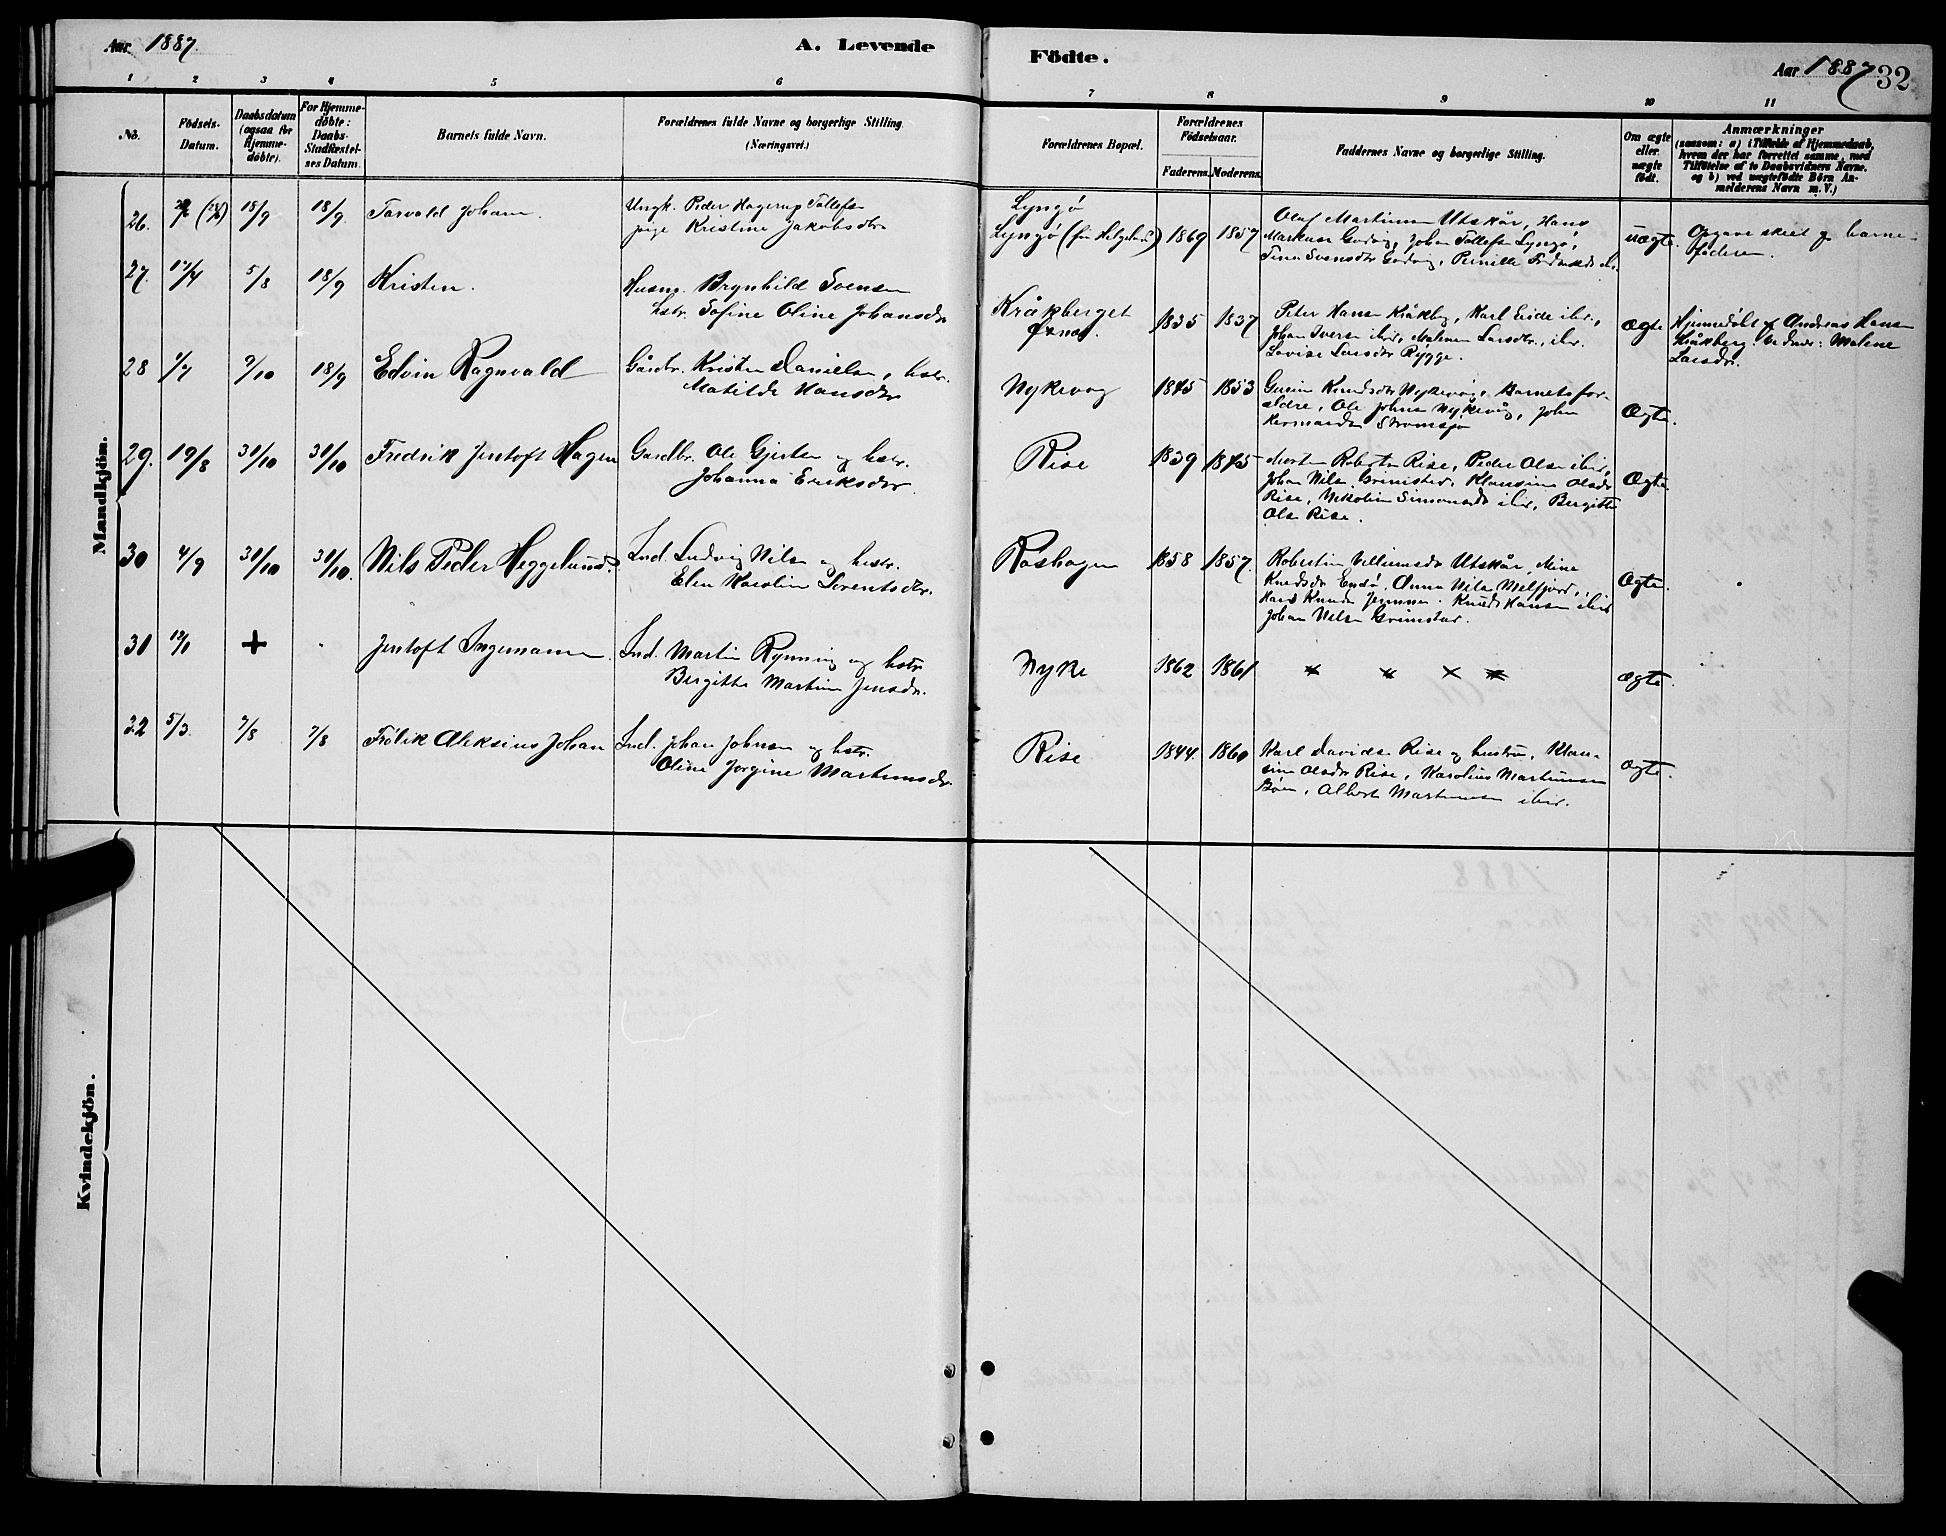 Aar 1887.
A. Levende
Födte.
Aar 1887
32
1 2 3 4 5 6 7 8 9 10 11
No.
Födsels-Datum.
Daabsdatum (ogsaa for Hjemme-döbte).
For Hjemme-döbte: Daabs-Stadfæstel-ses Datum.
Barnets fulde Navn.
Forældrenes fulde Navne og borgerlige Stilling.
(Næringsvei.)
Forældrenes Bopæl.
Forældrenes Födselsaar.
Faderens. Moderens.
Faddernes Navne og borgerlige Stilling.
Om ægte eller uægte födt.
Anmærkninger
(saasom: a) i Tilfælde af Hjemmedaab,
hvem der har forrettet samme, med
Tilföielse af to Daabsvidners Navne,
og b) ved uægtefödte Börn An-
melderens Navn m. V.)
Mandkjön.
26. 18/9 18/9. Torvald Johan.
Ungk. Peder Hagerup Tollefsen
pige Kristine Jakobsdtr
Lyngö
Lyngö 1869 1857
Olaf Martinus Utskår, Hans
Markusen Godvig, Johan Tollefsen Lyngö,
Tina Svensdtr Godvig, Pernille
uægte.
Opgave skeet af barne-
faderen.
27. 5/8 18/9 Kristen.
Husm. Brynhild Svensen
hstr. Sofine Oline Johansdtr
Kråkberget
1835 1837
Peter Hansen Kråkbg, Karl Eide ibid.,
Johan Iversen ibid, Malene Larsdtr., ibid.
Lovise Larsdtr Rygge.
Ægte
Hjemmedöbt af Andreas Hansen
Kråkberg. Vidner: Malene
Larsdtr.
28 1/7 9/10 18/9 Edvin Ragnvald
Gårdbr. Kristen Danielsen, hstr.
Matilde Hansdtr
Nykvåg 1845 1853
Knudsdtr Nykevåg, Barnets for-
ældre, Ole Johnsen Nykevåg, John
Hermansen
Ægte.
29. 19/8 30/10 30/10 Fredrik Jentoft Hagen
Gardbr. Ole Gjertsen og hstr.
Johanna Eriksdtr.
Rise 1839 1845
Morten Robertsen Rise, Peder Olsen ibid,
Johan Nilsen Grimstad, Klausine Olsdtr
Rise, Nikoline Simonsdtr ibid, Bergitte
Olsen Rise.
Ægte
30 4/9 30/10 30/10. Nils Peder Heggelund.
Ind. Ludvig Nilsen og hstr.
Elen Karoline Lorentsdtr.
Röshagen 1858 1857.
Robertine Villumsdtr Utskår, Mine
Knudsdtr Endö, Anna Nilsen Melfjord,
Hans Knudsen Jennestad. Knud Hansen ibid
Johan Nilsen Grimstad.
Ægte.
31 + Jentoft Ingemann.
Ind. Martin Rynning og hstr
Bergitte Martine Jensdtr.
Nyke 1862 1861
× × × ×
ægte.
32 5/3. 7/8 7/8 Frölik Aleksius Johan
Ind. Johan Johnsen og hstr.
Oline Jorgine Martinusdtr.
Rise 1844. 1860
Karl Davidsen Rise og hustru, Klau-
sine Olsdtr Rise, Karolius Martinussen
Böen, Albert Martinussen ibid.
ægte.
Kvindekjön.
1888